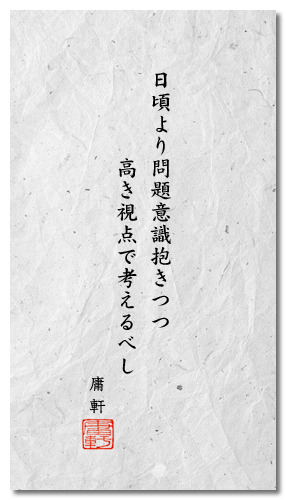 日頃より問題意識抱きつつ
高き視点で考えるべし
庸軒